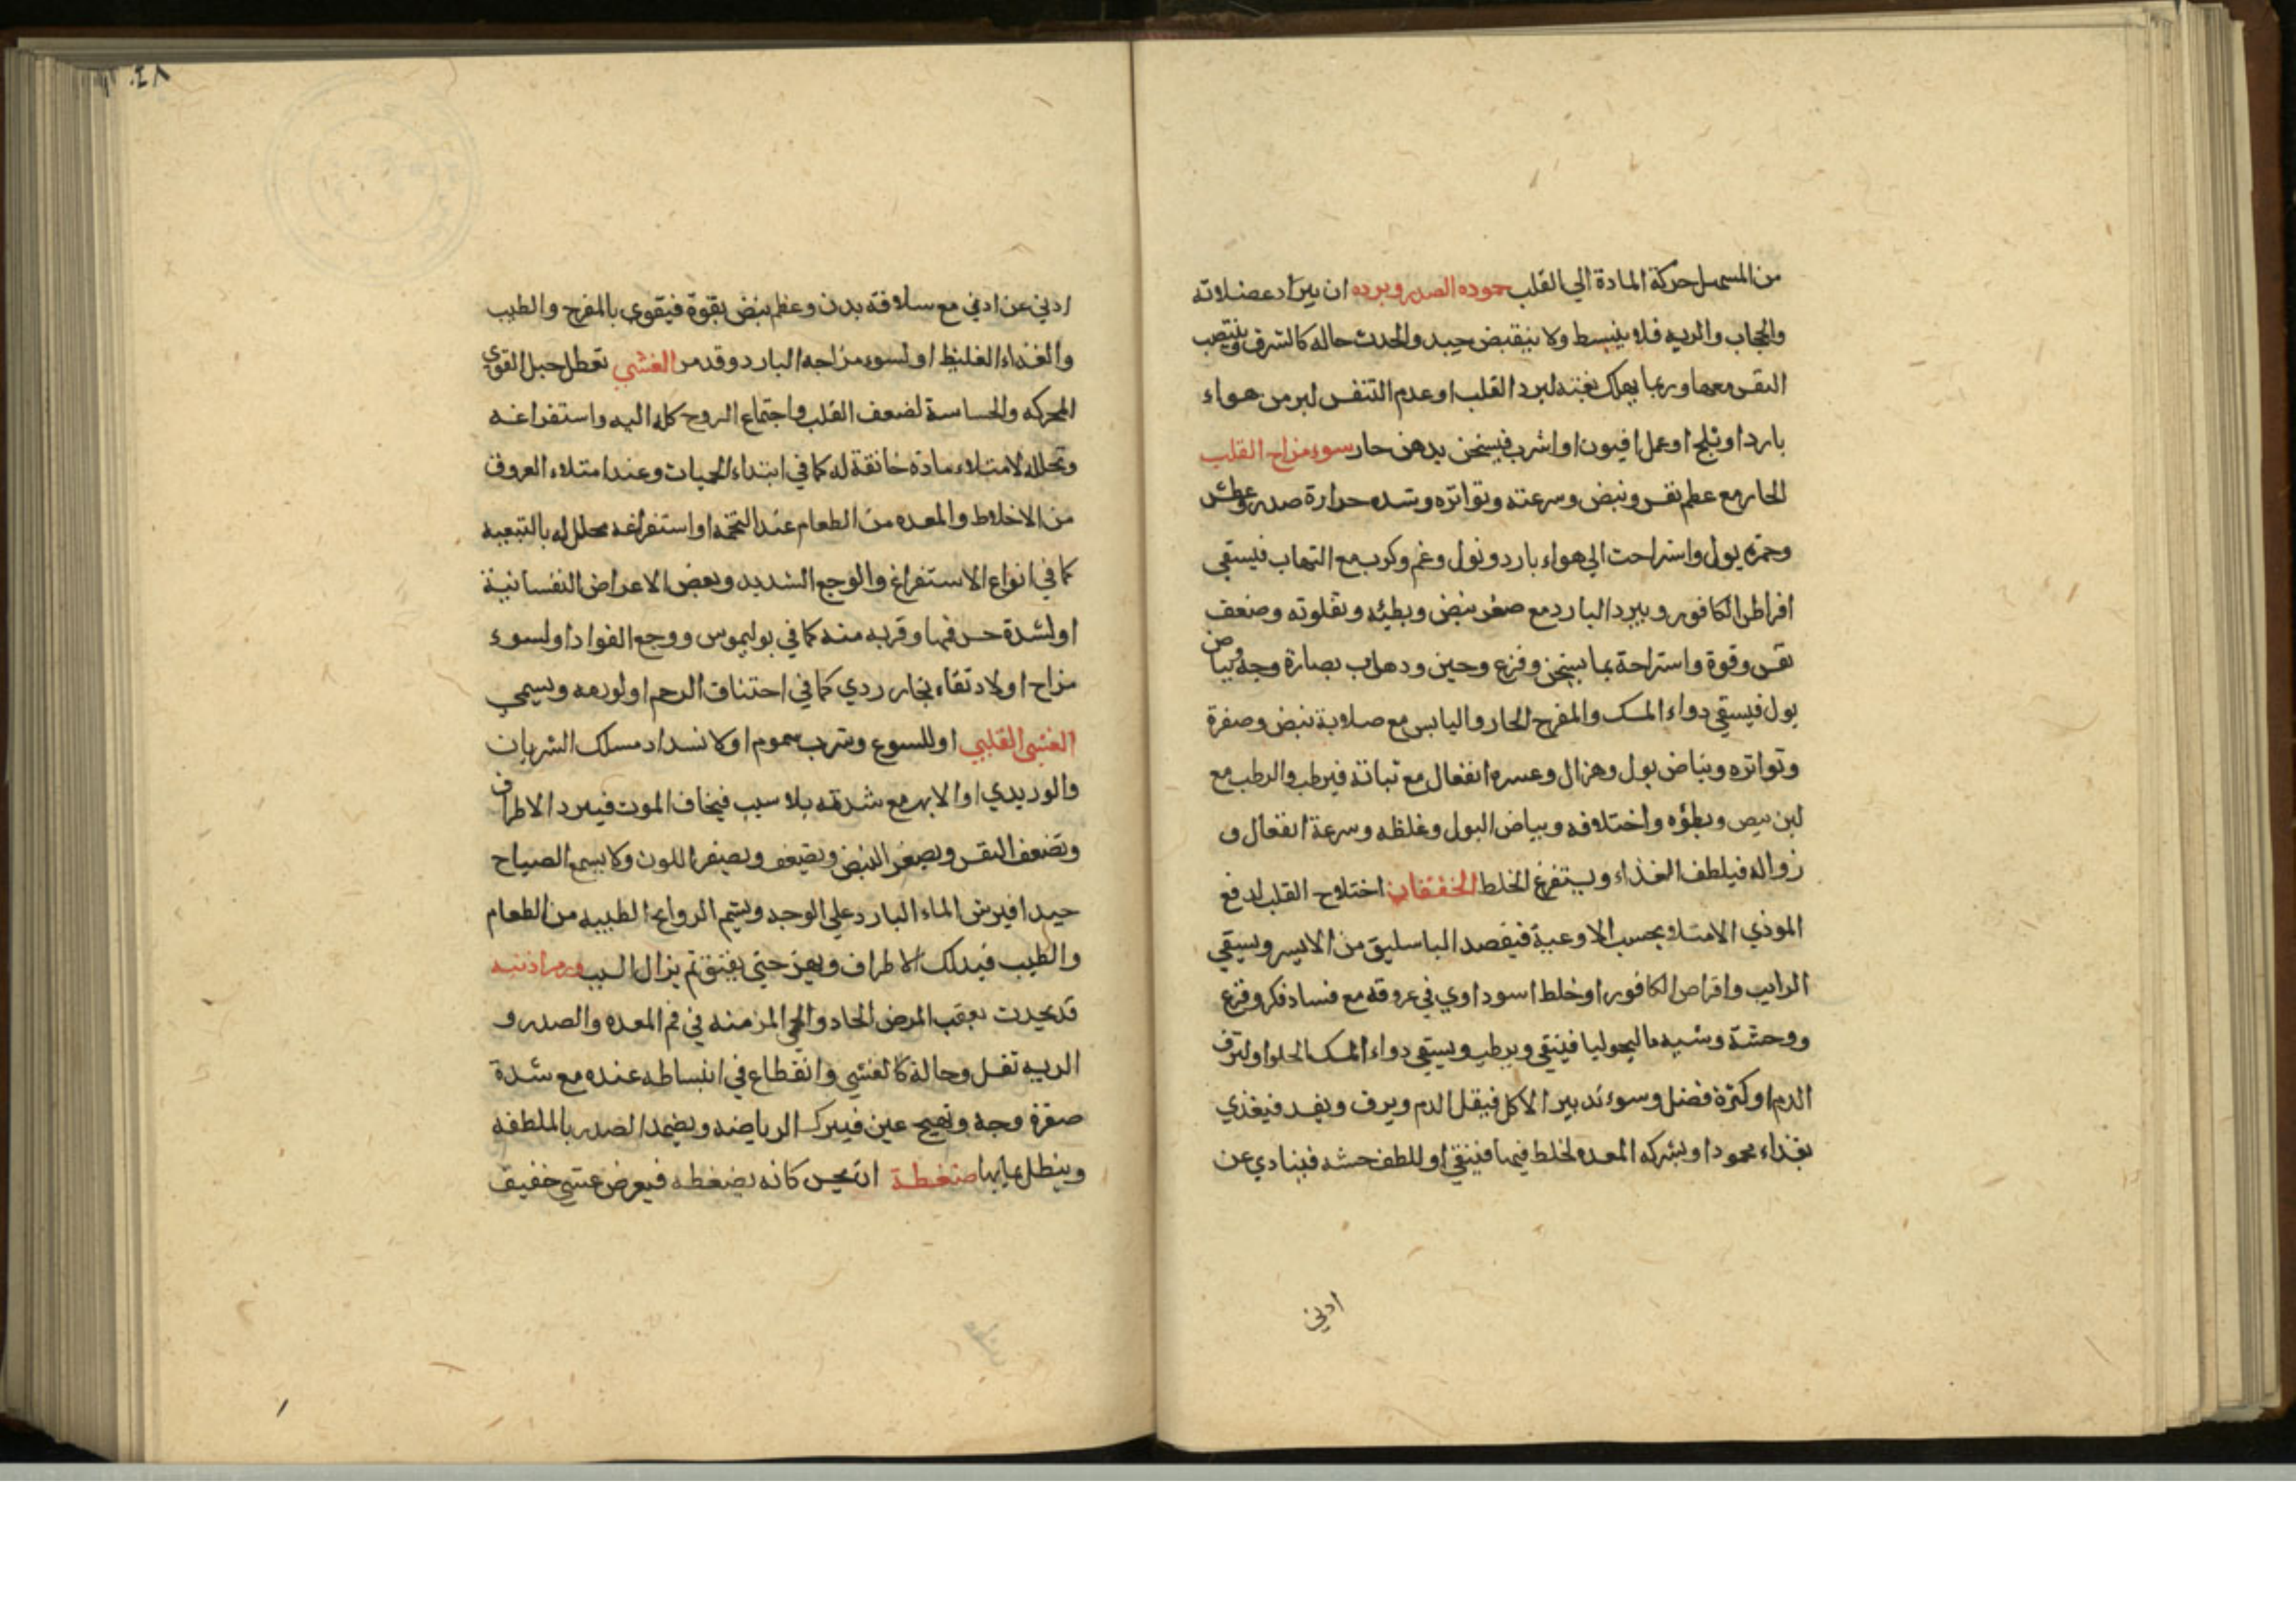 من المسهل حركة المادة الي القلب جموده الصدر وبرده ان يبرد عضلاته
والحجاب والريه فلا ينبسط ولا ينقبض جيد والحدث حاله كالشرق وينتصب
النفس معها وربما يهلك بغتة لبرد القلب او عدم التنفس لبر من هواء
بارد او ثلج او عمل افيون او اشرب فيسخن بدهن حار سوء مزاج القلب
الحار مع عظم نفس ونبض وسرعته وتواتره وشده حرارة صدر وعطش
وحمرة بول واستراحت الي هواء بارد ونول وغم وكرب مع التهاب فيسقي
اقراط الكافور ويبرد البارد مع صغر نبض وبطئه وتفاوته وضعف
نفس وقوة واستراحة بما يسخن وفزع وجبن وذهاب بصارة وجه وبياض
بول فيسقي دواء المسك والمفرح الحار واليابس مع صلابة نبض وصفرة
وتواتره وبياض بول وهزال وعسره انفعال مع ثباتة فيرطب والرطب مع
لين نبص وبطؤه واختلافه وبياض البول وغلظه وسرعة انفعال و
زواله فيلطف الغذاء ويستفرغ الخلط الخفقان اختلاج القلب لدفع
الموذي الامتلاء بحسب الاوعية فيفصد الباسليق من الايسر ويسقي
الرايب واقراص الكافور او خلط اسوداوي في عروقه مع فساد فكر وفزع
ووحشة وشبه ماليخوليا فينقي ويرطب ويسقي دواء المسك الحلو او لنزف
الدم او كثرة فضل وسوء تدبير الاكل فيقل الدم ويرق ويفسد فيغذي
بغذاء محمود او بشركه المعده لخلط فيها فينقي او للطف حسه فيتاذي عن
ادني
ادني عن ادني مع سلافة بدن وعظم نبض بقوة فيقوي بالمفرح والطيب
والغذاء الغليظ او لسوء مزاجه البارد وقد مر الغشي تعطل جل القوي
المحركه والحساسة لضعف القلب واجتماع الروح كله اليه واستفراغه
وتحلله لامتلاء مادة خانقة له كما في ابتداء الحميات وعند امتلاء العروق
من الاخلاط والمعده من الطعام عند التخمة او استفراغه محلل له بالتبعية
كما في انواع الاستفراغ والوجع الشديد وبعض الاعراض النفسانية
او لشدة حس فمها وقربه منه كما في بوليموس ووجع الفواد او لسوء
مزاج او لارتقاء بخار ردي كما في احتناق الرحم او لورمه ويسمي
الغشي القلبي او للسوع وشرب سموم او لانسداد مسلك الشريان
والوريدي او الابهر مع شدته بلا سبب فيخاف الموت فيبرد الاطراف
وتضعف النفس ويصغر النبض ويضعف ويصفر اللون ولا يسمع الصياح
جيدا فيرش الماء البارد علي الوجه ويشم الروايح الطيبه من الطعام
والطيب فيدلك الاطراف ويغمز حتي يفيق ثم يزال السبب ورم اذنيه
قد يحدث بعقب المرض الحاد والحمي المزمنه في فم المعده والصدر و
الريه ثقل وحالة كالغشي وانقطاع في انبساطه عنده مع شدة
صفرة وجه وتهيج عين فيترك الرياضه ويضمد الصدر بالملطفه
وينطل عليها ضغطة ان يحس كانه يضغطه فيعرض غشي خفيف